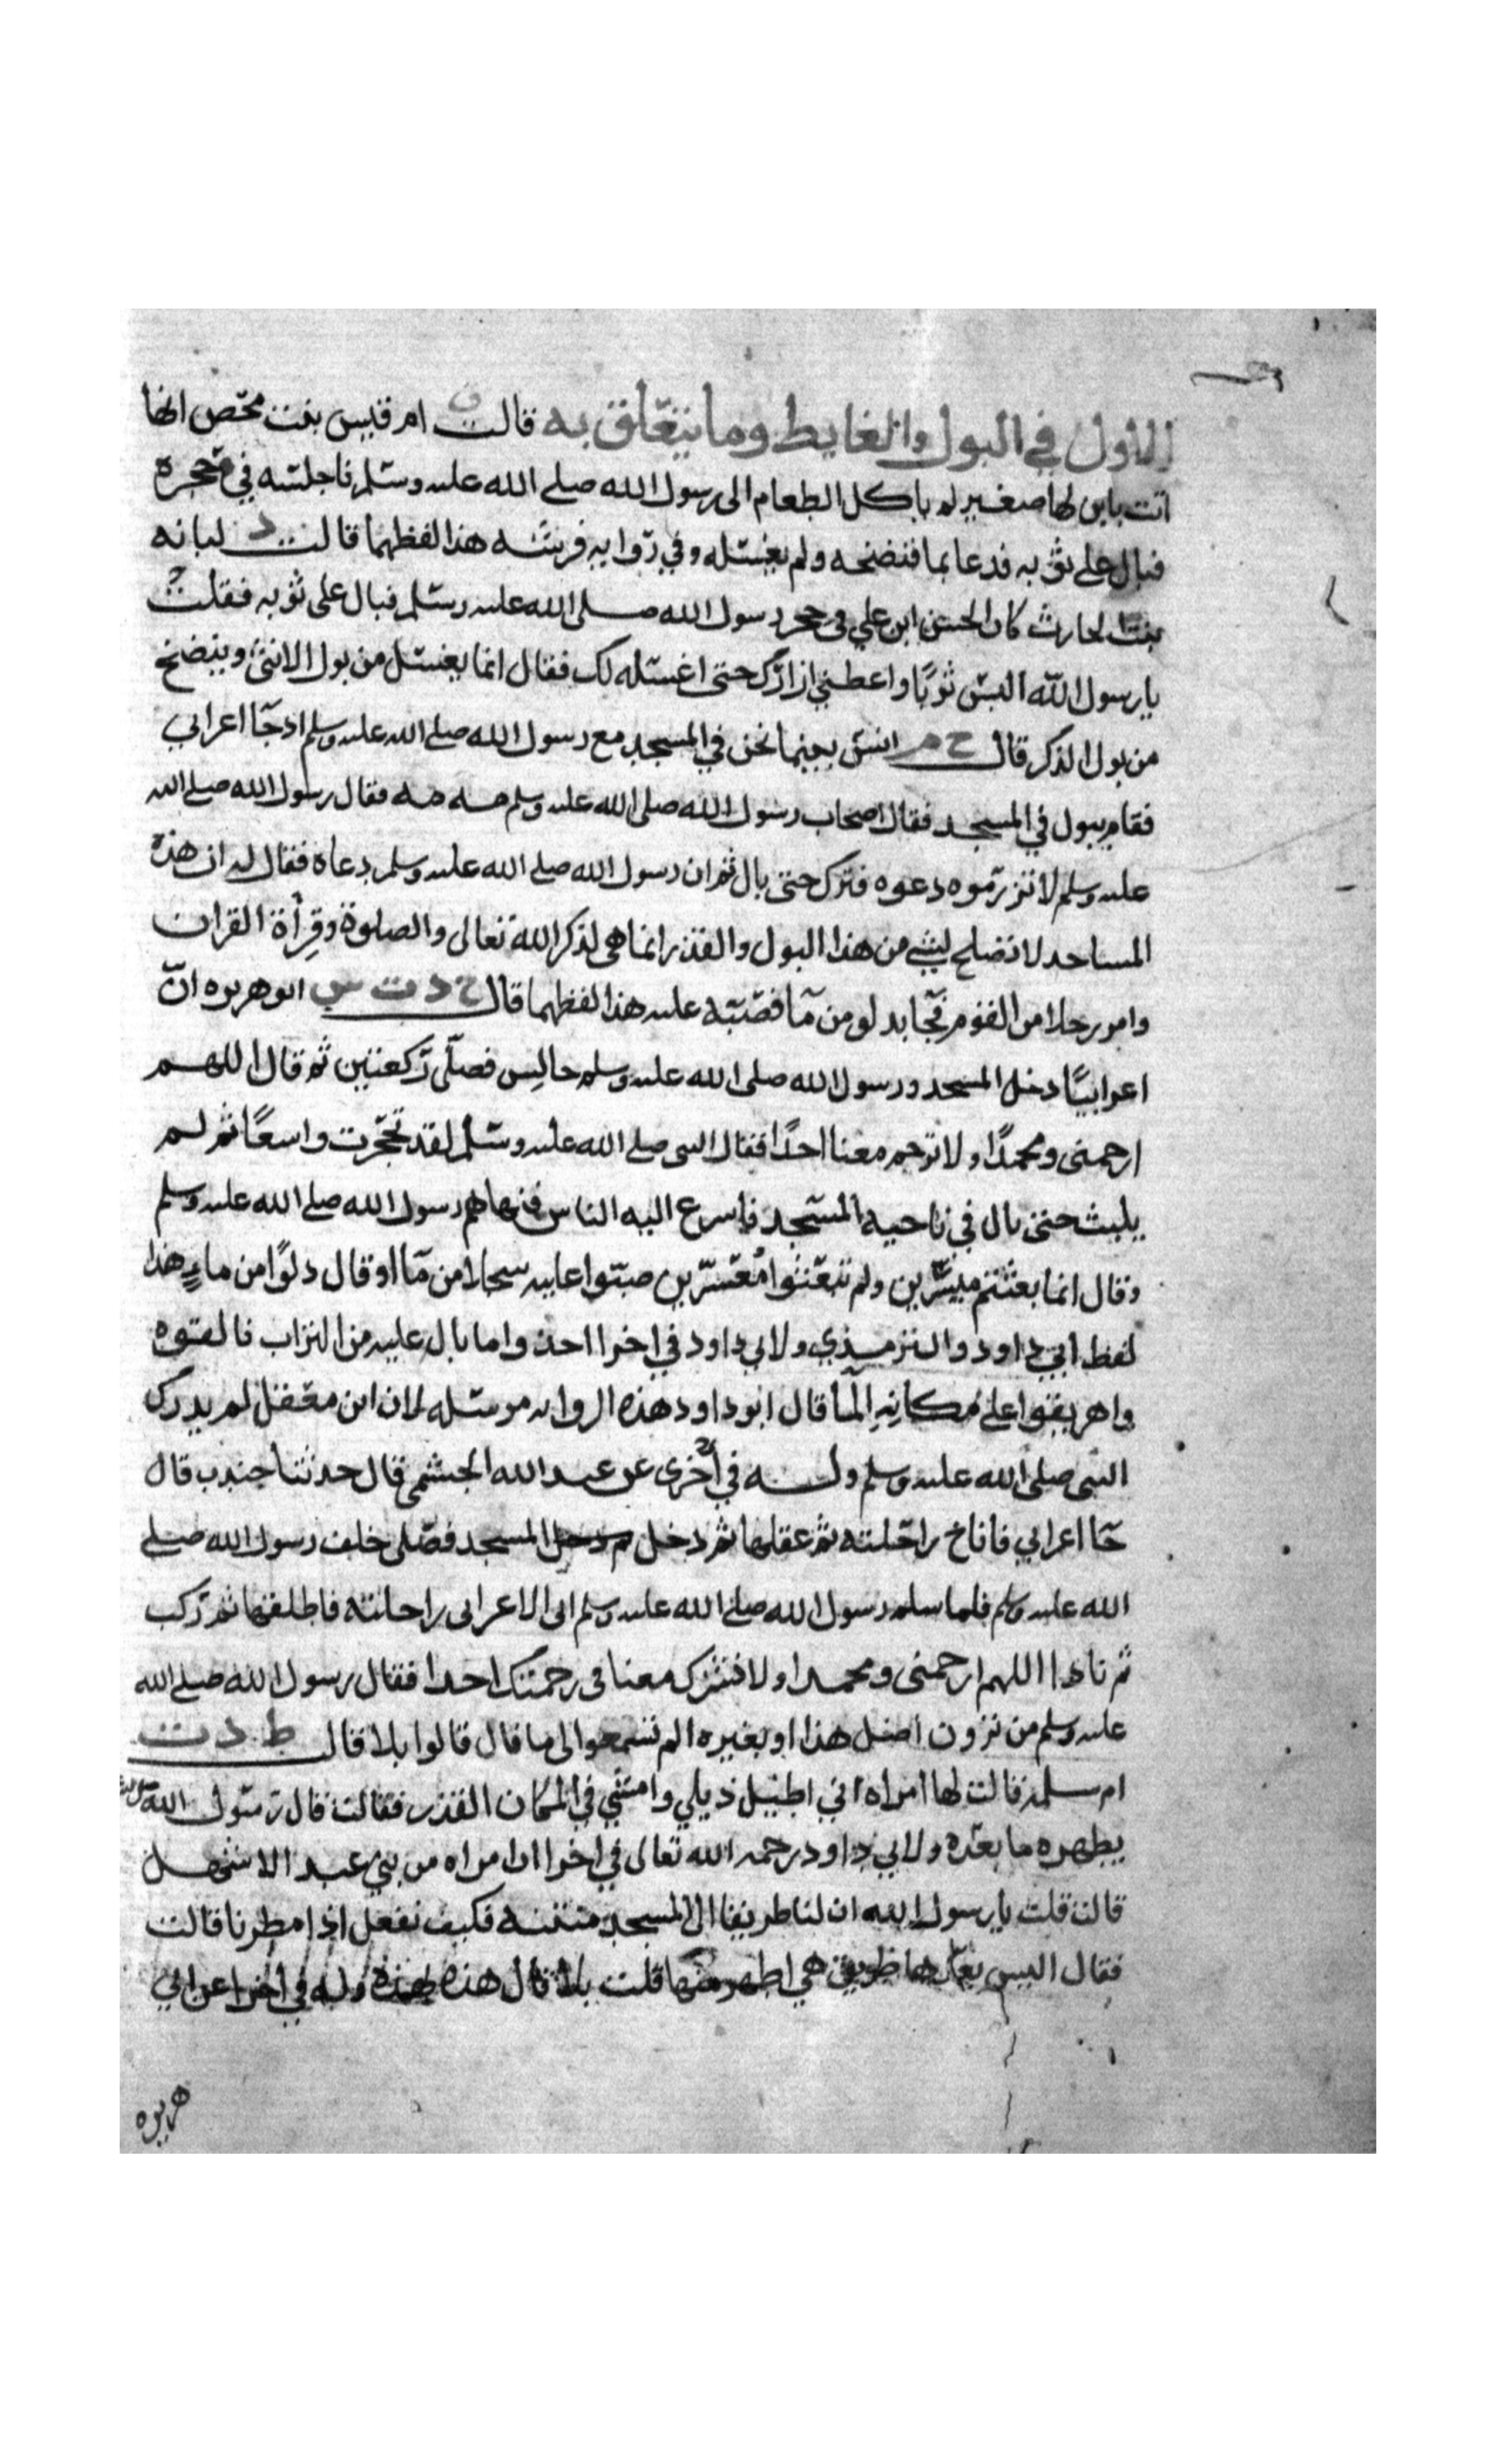 الاول في البول والغايط وما يتعلق به قالت ق ام قيس بنت محصن انها
اتت بابن لها صغير لم ياكل الطعام الى رسول الله صلى الله عليه وسلم فاجلسه في حجره
فبال على ثوبه فدعا بما فنضحه ولم يغسله وفي رواية فرشه هذا لفظهما قالت د لبابه
بنت الحارث كان الحسن ابن علي في حجر رسول الله صلى الله عليه وسلم فبال على ثوبه فقلت
يا رسول الله البس ثوبًا واعطني ازارك حتى اغسله لك فقال انما يغسل من بول الانثى وينضح
من بول الذكر قال خ م انس بينما نحن في المسجد مع رسول الله صلى الله عليه وسلم اذ جآ اعرابي
فقام يبول في المسجد فقال اصحاب رسول الله صلى الله عليه وسلم مه مه فقال رسول الله صلى الله
عليه وسلم لا تزرموه دعوه فترك حتى بال ثم ان رسول الله صلى الله عليه وسلم دعاه فقال له ان هذه
المساجد لا تصلح لشي من هذا البول والقذر انما هي لذكر الله تعالى والصلوة وقرأة القران
وامر رجلا من القوم فجآ بدلو من مآ فصبه عليه هذا لفظهما قال خ د ت س ابو هريره انّ
اعرابيًا دخل المسجد ورسول الله صلى الله عليه وسلم جالس فصلى ركعتين ثم قال اللهم
ارحمني ومحمدًا ولا ترحم معنا احدًا فقال النبي صلى الله عليه وسلم لقد تحجرت واسعًا ثم لم
يلبث حتى بال في ناحيه المسجد فاسرع اليه الناس فنهاهم رسول الله صلى الله عليه وسلم
وقال انما بعثتم ميسرين ولم تبعثوا معسرين صبوا عليه سجالا من مآ او قال دلوًا من ماءٍ هذا
لفظ ابي داود والترمذي ولابي داود في اخرا خذوا ما بال عليه من التراب فالقوه
واهريقوا على مكانه المآ قال ابو داود هذه الروايه مرسله لان ابن معقل لم يدرك
النبي صلى الله عليه وسلم وله في أخرى عن عبد الله الجشمي قال حدثنا جندب قال
جآ اعرابي فاناخ راحلته ثم عقلها ثم دخل المسجد فصلى خلف رسول الله صلى
الله عليه وسلم فلما سلم رسول الله صلى الله عليه وسلم اتى الاعرابي راحلته فاطلقها ثم ركب
ثم نادا اللهم ارحمني ومحمدا ولا تشرك معنا في رحمتك احدا فقال رسول الله صلى الله
عليه وسلم من ترون اضل هذا او بعيره الم تسمعوا الى ما قال قالوا بلا قال ط د ت
ام سلمه قالت لها امراه اني اطيل ذيلي وامشي في المكان القذر فقالت قال رسول الله
يطهره ما بعده ولابي داود رحمه الله تعالى في اخرا ان امراه من بني عبد الاشهل
قالت قلت يا رسول الله ان لنا طريقا الى المسجد منتنه فكيف نفعل اذا مطرنا قالت
فقال اليس بعدها طريق هي اطهر منها قلت بلا قال هذه بهذه وله في اخرا عن ابي
هريره